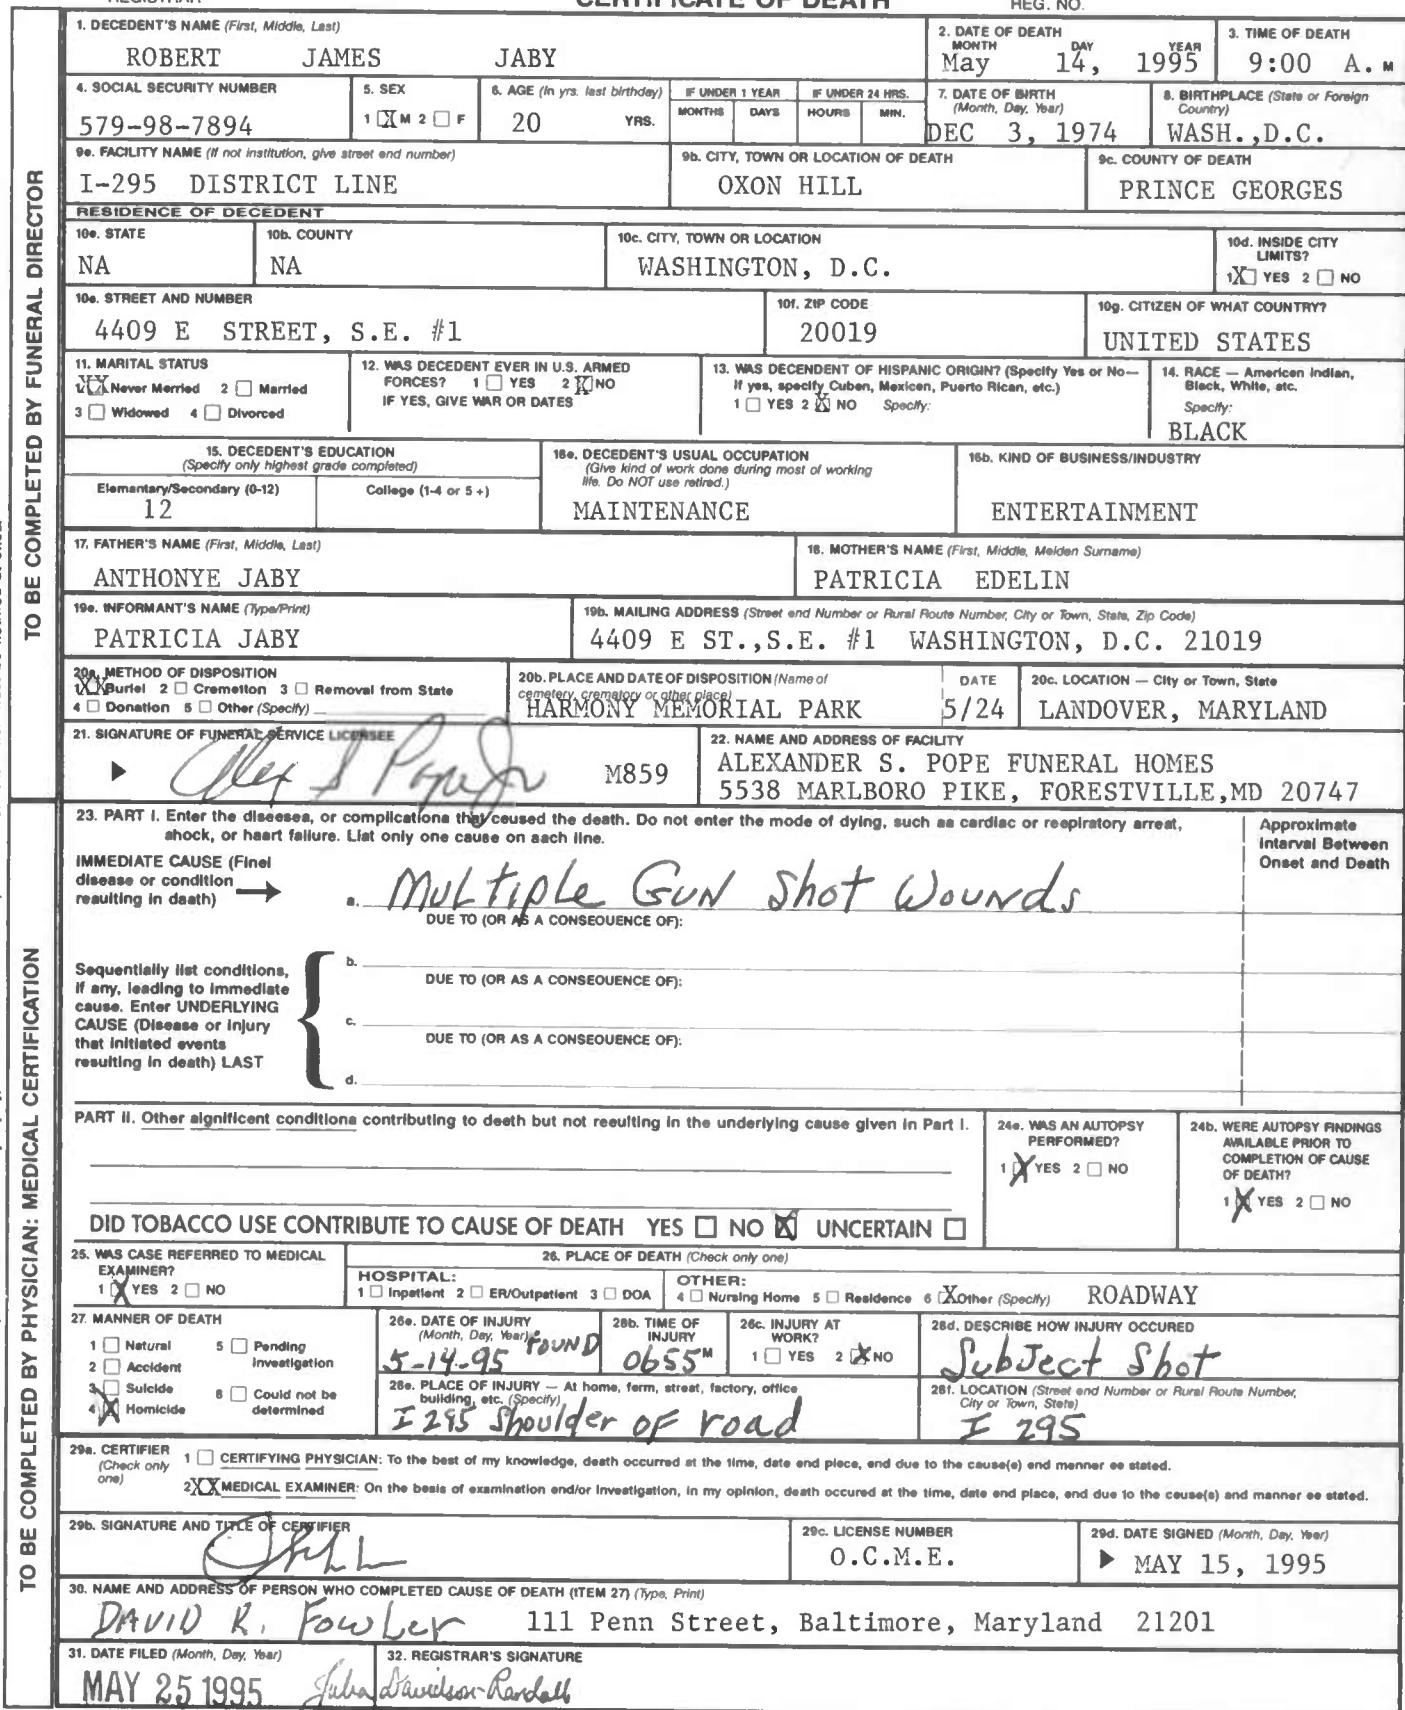 CERTIFICATE OF DEATH
REG. NO.
1. DECEDENT'S NAME (First, Middle, Last)
ROBERT JAMES JABY
2. DATE OF DEATH
MONTH DAY YEAR
May 14, 1995
3. TIME OF DEATH
9:00 A. M
4. SOCIAL SECURITY NUMBER
579-98-7894
5. SEX
1 X M 2 ☐ F
6. AGE (In yrs. last birthday)
20 YRS.
IF UNDER 1 YEAR
MONTHS DAYS
IF UNDER 24 HRS.
HOURS MIN.
7. DATE OF BIRTH
(Month, Day, Year)
DEC 3, 1974
8. BIRTHPLACE (State or Foreign
Country)
WASH.,D.C.
9e. FACILITY NAME (If not institution, give street end number)
I-295 DISTRICT LINE
9b. CITY, TOWN OR LOCATION OF DEATH
OXON HILL
9c. COUNTY OF DEATH
PRINCE GEORGES
RESIDENCE OF DECEDENT
10e. STATE
NA
10b. COUNTY
NA
10c. CITY, TOWN OR LOCATION
WASHINGTON, D.C.
10d. INSIDE CITY
LIMITS?
1 X YES 2 ☐ NO
10e. STREET AND NUMBER
4409 E STREET, S.E. #1
10f. ZIP CODE
20019
10g. CITIZEN OF WHAT COUNTRY?
UNITED STATES
11. MARITAL STATUS
1 XX Never Merried 2 ☐ Married
3 ☐ Widowed 4 ☐ Divorced
12. WAS DECEDENT EVER IN U.S. ARMED
FORCES? 1 ☐ YES 2 X NO
IF YES, GIVE WAR OR DATES
13. WAS DECENDENT OF HISPANIC ORIGIN? (Specify Yes or No—
If yes, specify Cuben, Mexicen, Puerto Rican, etc.)
1 ☐ YES 2 X NO Specify:
14. RACE — American Indian,
Bleck, White, atc.
Specify:
BLACK
15. DECEDENT'S EDUCATION
(Specify only highest grade completed)
Elamantary/Secondary (0-12)
12
College (1-4 or 5 +)
16e. DECEDENT'S USUAL OCCUPATION
(Give kind of work done during most of working
life. Do NOT use retired.)
MAINTENANCE
16b. KIND OF BUSINESS/INDUSTRY
ENTERTAINMENT
17. FATHER'S NAME (First, Middle, Last)
ANTHONYE JABY
18. MOTHER'S NAME (First, Middle, Meiden Surname)
PATRICIA EDELIN
19e. INFORMANT'S NAME (Type/Print)
PATRICIA JABY
19b. MAILING ADDRESS (Street end Number or Rural Route Number, City or Town, State, Zip Code)
4409 E ST.,S.E. #1 WASHINGTON, D.C. 21019
20a. METHOD OF DISPOSITION
1 XX Buriel 2 ☐ Cremetton 3 ☐ Removal from State
4 ☐ Donation 5 ☐ Other (Specify)
20b. PLACE AND DATE OF DISPOSITION (Name of
cemetery, crematory or other place)
HARMONY MEMORIAL PARK
DATE
5/24
20c. LOCATION — City or Town, State
LANDOVER, MARYLAND
21. SIGNATURE OF FUNERAL SERVICE LICENSEE
Alex S Pope Jr M859
22. NAME AND ADDRESS OF FACILITY
ALEXANDER S. POPE FUNERAL HOMES
5538 MARLBORO PIKE, FORESTVILLE,MD 20747
TO BE COMPLETED BY FUNERAL DIRECTOR
23. PART I. Enter the diseesea, or complicationa that ceused the death. Do not enter the mode of dying, such aa cardlac or reepiratory arreat,
shock, or heart failure. Liat only one cause on aach line.
Approximate
Interval Between
Onset and Death
IMMEDIATE CAUSE (Finel
disease or condition
reaulting in daath)
a. Multiple Gun Shot Wounds
DUE TO (OR AS A CONSEOUENCE OF):
Sequentially list conditions,
if any, leading to immediate
cause. Enter UNDERLYING
CAUSE (Disease or injury
that initiated events
resulting in death) LAST
b.
DUE TO (OR AS A CONSEOUENCE OF):
c.
DUE TO (OR AS A CONSEOUENCE OF):
d.
PART II. Other aignificent conditiona contributing to deeth but not reeulting in the underlying cause given in Part I.
24e. WAS AN AUTOPSY
PERFORMED?
1 X YES 2 ☐ NO
24b. WERE AUTOPSY FINDINGS
AVAILABLE PRIOR TO
COMPLETION OF CAUSE
OF DEATH?
1 X YES 2 ☐ NO
DID TOBACCO USE CONTRIBUTE TO CAUSE OF DEATH YES ☐ NO X UNCERTAIN ☐
25. WAS CASE REFERRED TO MEDICAL
EXAMINER?
1 X YES 2 ☐ NO
26. PLACE OF DEATH (Check only one)
HOSPITAL:
1 ☐ Inpatlent 2 ☐ ER/Outpatient 3 ☐ DOA
OTHER:
4 ☐ Nursing Home 5 ☐ Residence 6 X Other (Specify) ROADWAY
27. MANNER OF DEATH
1 ☐ Neturel 5 ☐ Pending
Investigation
2 ☐ Accident
3 ☐ Suicide 6 ☐ Could not be
determined
4 X Homicide
28e. DATE OF INJURY
(Month, Day, Year)
5-14-95 FOUND
28b. TIME OF
INJURY
0655 M
26c. INJURY AT
WORK?
1 ☐ YES 2 X NO
28d. DESCRIBE HOW INJURY OCCURED
Subject Shot
28e. PLACE OF INJURY — At home, ferm, street, factory, office
building, etc. (Specify)
I 295 Shoulder OF road
28f. LOCATION (Street end Number or Rural Route Number,
City or Town, State)
I 295
29a. CERTIFIER
(Check only
one)
1 ☐ CERTIFYING PHYSICIAN: To the best of my knowledge, death occurred at the time, date end piece, end due to the cause(e) end menner ee stated.
2 XX MEDICAL EXAMINER: On the besis of examination end/or Investigation, in my opinion, death occured at the time, date end place, end due to the ceuse(s) and manner ee stated.
29b. SIGNATURE AND TITLE OF CERTIFIER
29c. LICENSE NUMBER
O.C.M.E.
29d. DATE SIGNED (Month, Day, Year)
MAY 15, 1995
30. NAME AND ADDRESS OF PERSON WHO COMPLETED CAUSE OF DEATH (ITEM 27) (Type, Print)
DAVID R. Fowler 111 Penn Street, Baltimore, Maryland 21201
31. DATE FILED (Month, Day, Year)
MAY 25 1995
32. REGISTRAR'S SIGNATURE
Julia Davidson-Randall
TO BE COMPLETED BY PHYSICIAN: MEDICAL CERTIFICATION